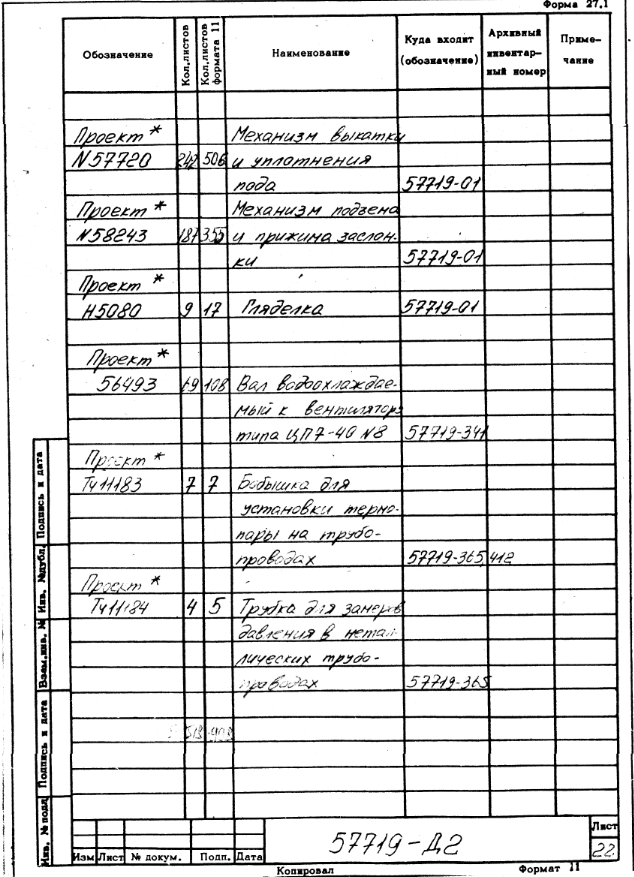 Форма 27.1
Обозначение Кол.листов Кол.листов формата 11 Наименование Куда входит (обозначение) Архивный инвентарный номер Примечание
Проект * Механизм выкатки
N57720 242 506 и уплотнения
пода 57719-01
Проект * Механизм подъема
N58243 187 355 и прижима заслон-
ки 57719-01
Проект *
Н5080 9 17 Гляделка 57719-01
Проект *
56493 69 108 Вал водоохлаждае-
мый к вентилятору
типа ЦП7-40 N8 57719-341
Проект *
Тч11183 7 7 Бобышка для
установки термо-
пары на трубо-
проводах 57719-365,412
Проект *
Тч11184 4 5 Трубка для замера
давления в метал-
лических трубо-
проводах 57719-365
Инв. № подл Подпись и дата Взам.инв. № Инв. №дубл. Подпись и дата
57719-Д2
Лист
22
Изм Лист № докум. Подп. Дата
Копировал Формат 11